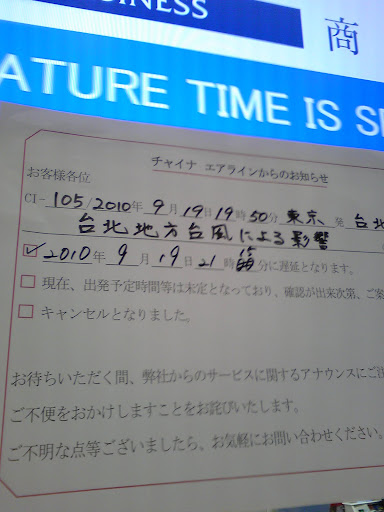 BUSINESS
商
ATURE TIME IS S
チャイナ エアラインからのお知らせ
お客様各位
CI- 105/2010年 9月19日19時50分 東京 発 台北
台北地方台風による影響
☑2010年 9月19日21時 分に遅延となります。
□ 現在、出発予定時間等は未定となっており、確認が出来次第、ご案
□ キャンセルとなりました。
お待ちいただく間、弊社からのサービスに関するアナウンスにご注
ご不便をおかけしますことをお詫びいたします。
ご不明な点等ございましたら、お気軽にお問い合わせください。